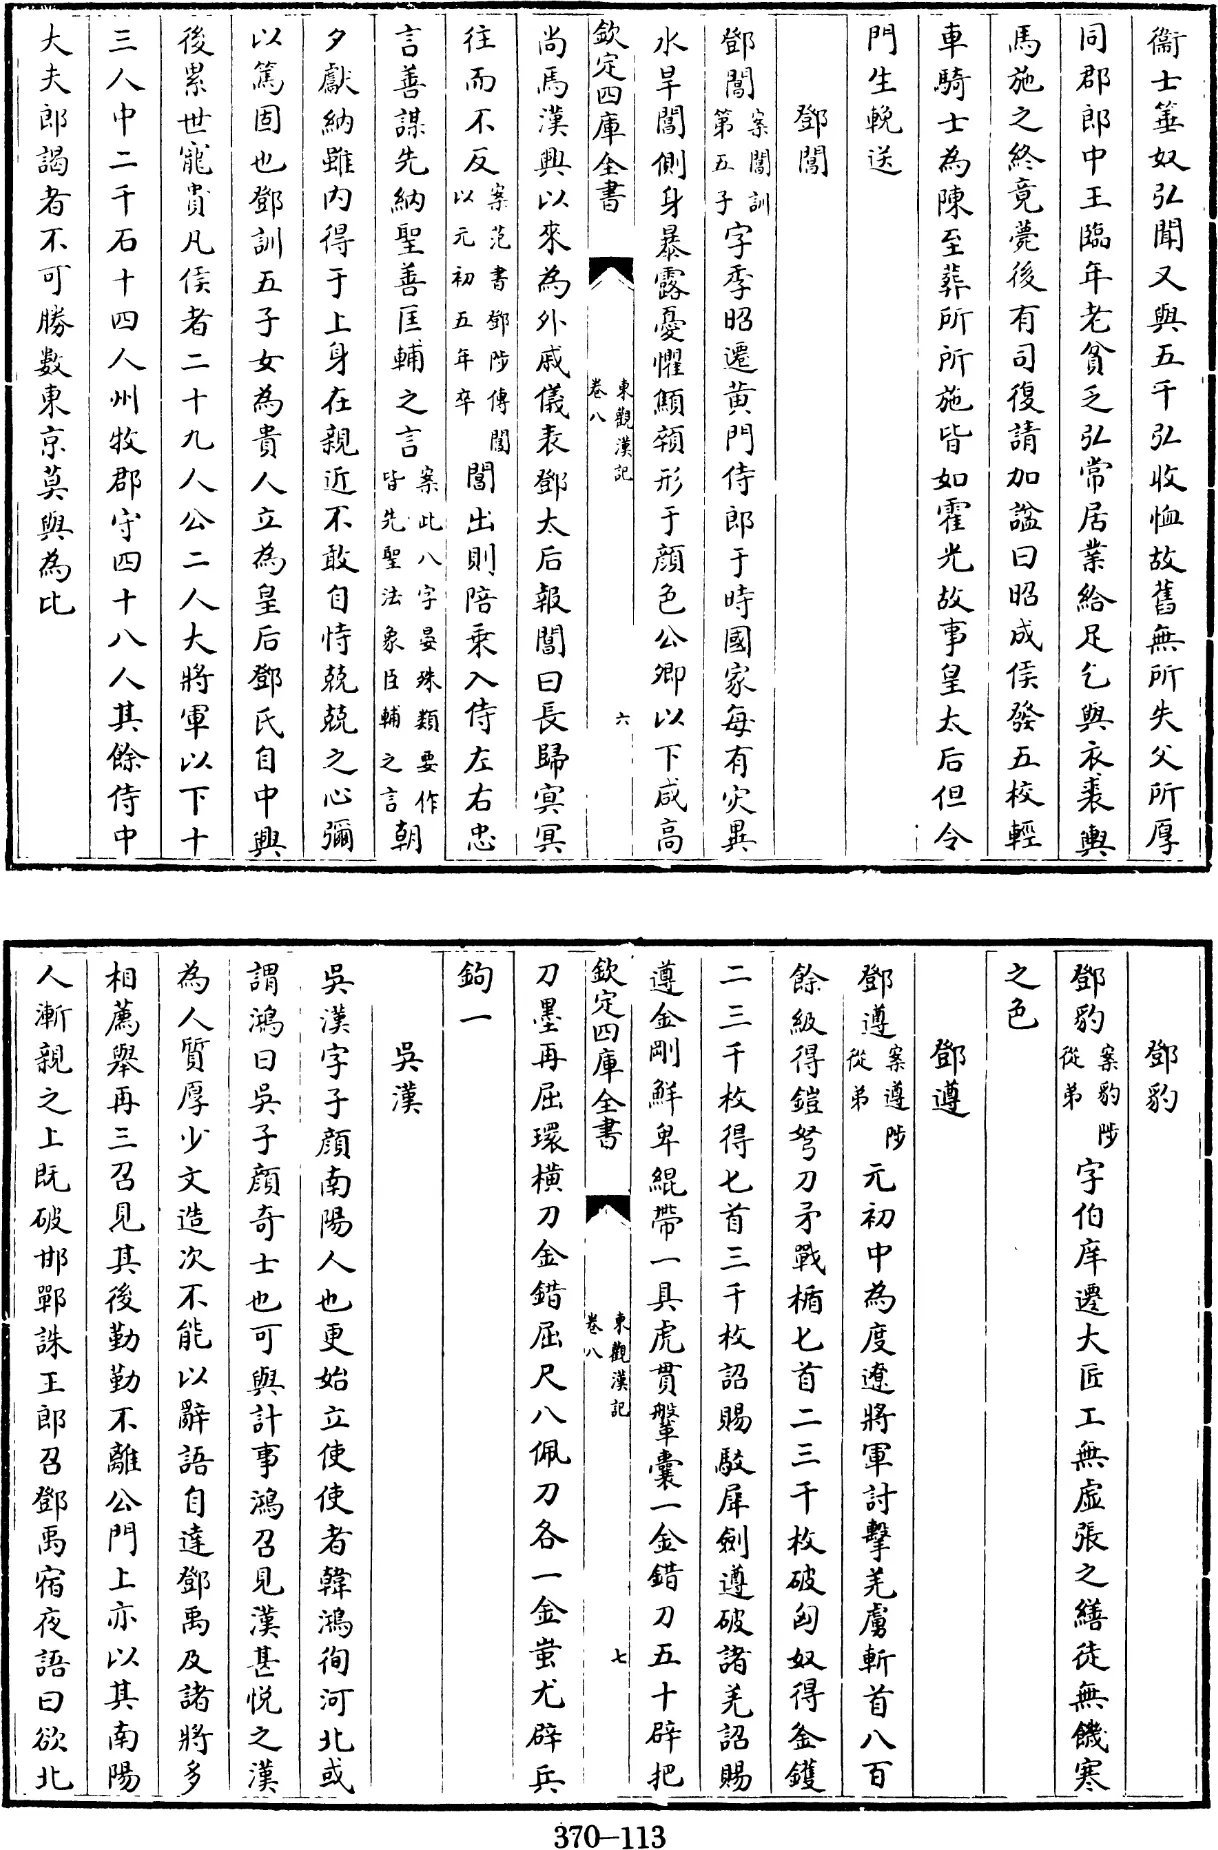 衞士箠奴弘聞又與五千弘收恤故舊無所失父所厚
同郡郎中王臨年老貧乏弘常居業給足乞與衣裘輿
馬施之終竟薨後有司復請加諡曰昭成侯發五校輕
車騎士為陳至葬所所施皆如霍光故事皇太后但令
門生輓送
鄧閶
鄧閶案閶訓第五子字季昭遷黄門侍郎于時國家每有災異
水旱閶側身暴露憂懼顦顇形于顔色公卿以下咸高
欽定四庫全書 東觀漢記卷八 六
尚焉漢興以來為外戚儀表鄧太后報閶曰長歸冥冥
往而不反案范書鄧陟傳閶以元初五年卒閶出則陪乘入侍左右忠
言善謀先納聖善匡輔之言案此八字晏殊類要作皆先聖法象臣輔之言朝
夕獻納雖内得于上身在親近不敢自恃兢兢之心彌
以篤固也鄧訓五子女為貴人立為皇后鄧氏自中興
後累世寵貴凡侯者二十九人公二人大將軍以下十
三人中二千石十四人州牧郡守四十八人其餘侍中
大夫郎謁者不可勝數東京莫與為比
鄧豹
鄧豹案豹陟從弟字伯庠遷大匠工無虚張之繕徒無饑寒
之色
鄧遵
鄧遵案遵陟從弟元初中為度遼將軍討擊羌虜斬首八百
餘級得鎧弩刀矛戰楯匕首二三千枚破匈奴得釜鑊
二三千枚得匕首三千枚詔賜駮犀劍遵破諸羌詔賜
遵金剛鮮卑緄帶一具虎賁鞶囊一金錯刀五十辟把
欽定四庫全書 東觀漢記卷八 七
刀墨再屈環横刀金錯屈尺八佩刀各一金蚩尤辟兵
鉤一
吳漢
吳漢字子顔南陽人也更始立使使者韓鴻徇河北或
謂鴻曰吳子顔奇士也可與計事鴻召見漢甚悦之漢
為人質厚少文造次不能以辭語自達鄧禹及諸將多
相薦舉再三召見其後勤勤不離公門上亦以其南陽
人漸親之上既破邯鄲誅王郎召鄧禹宿夜語曰欲北
370-113